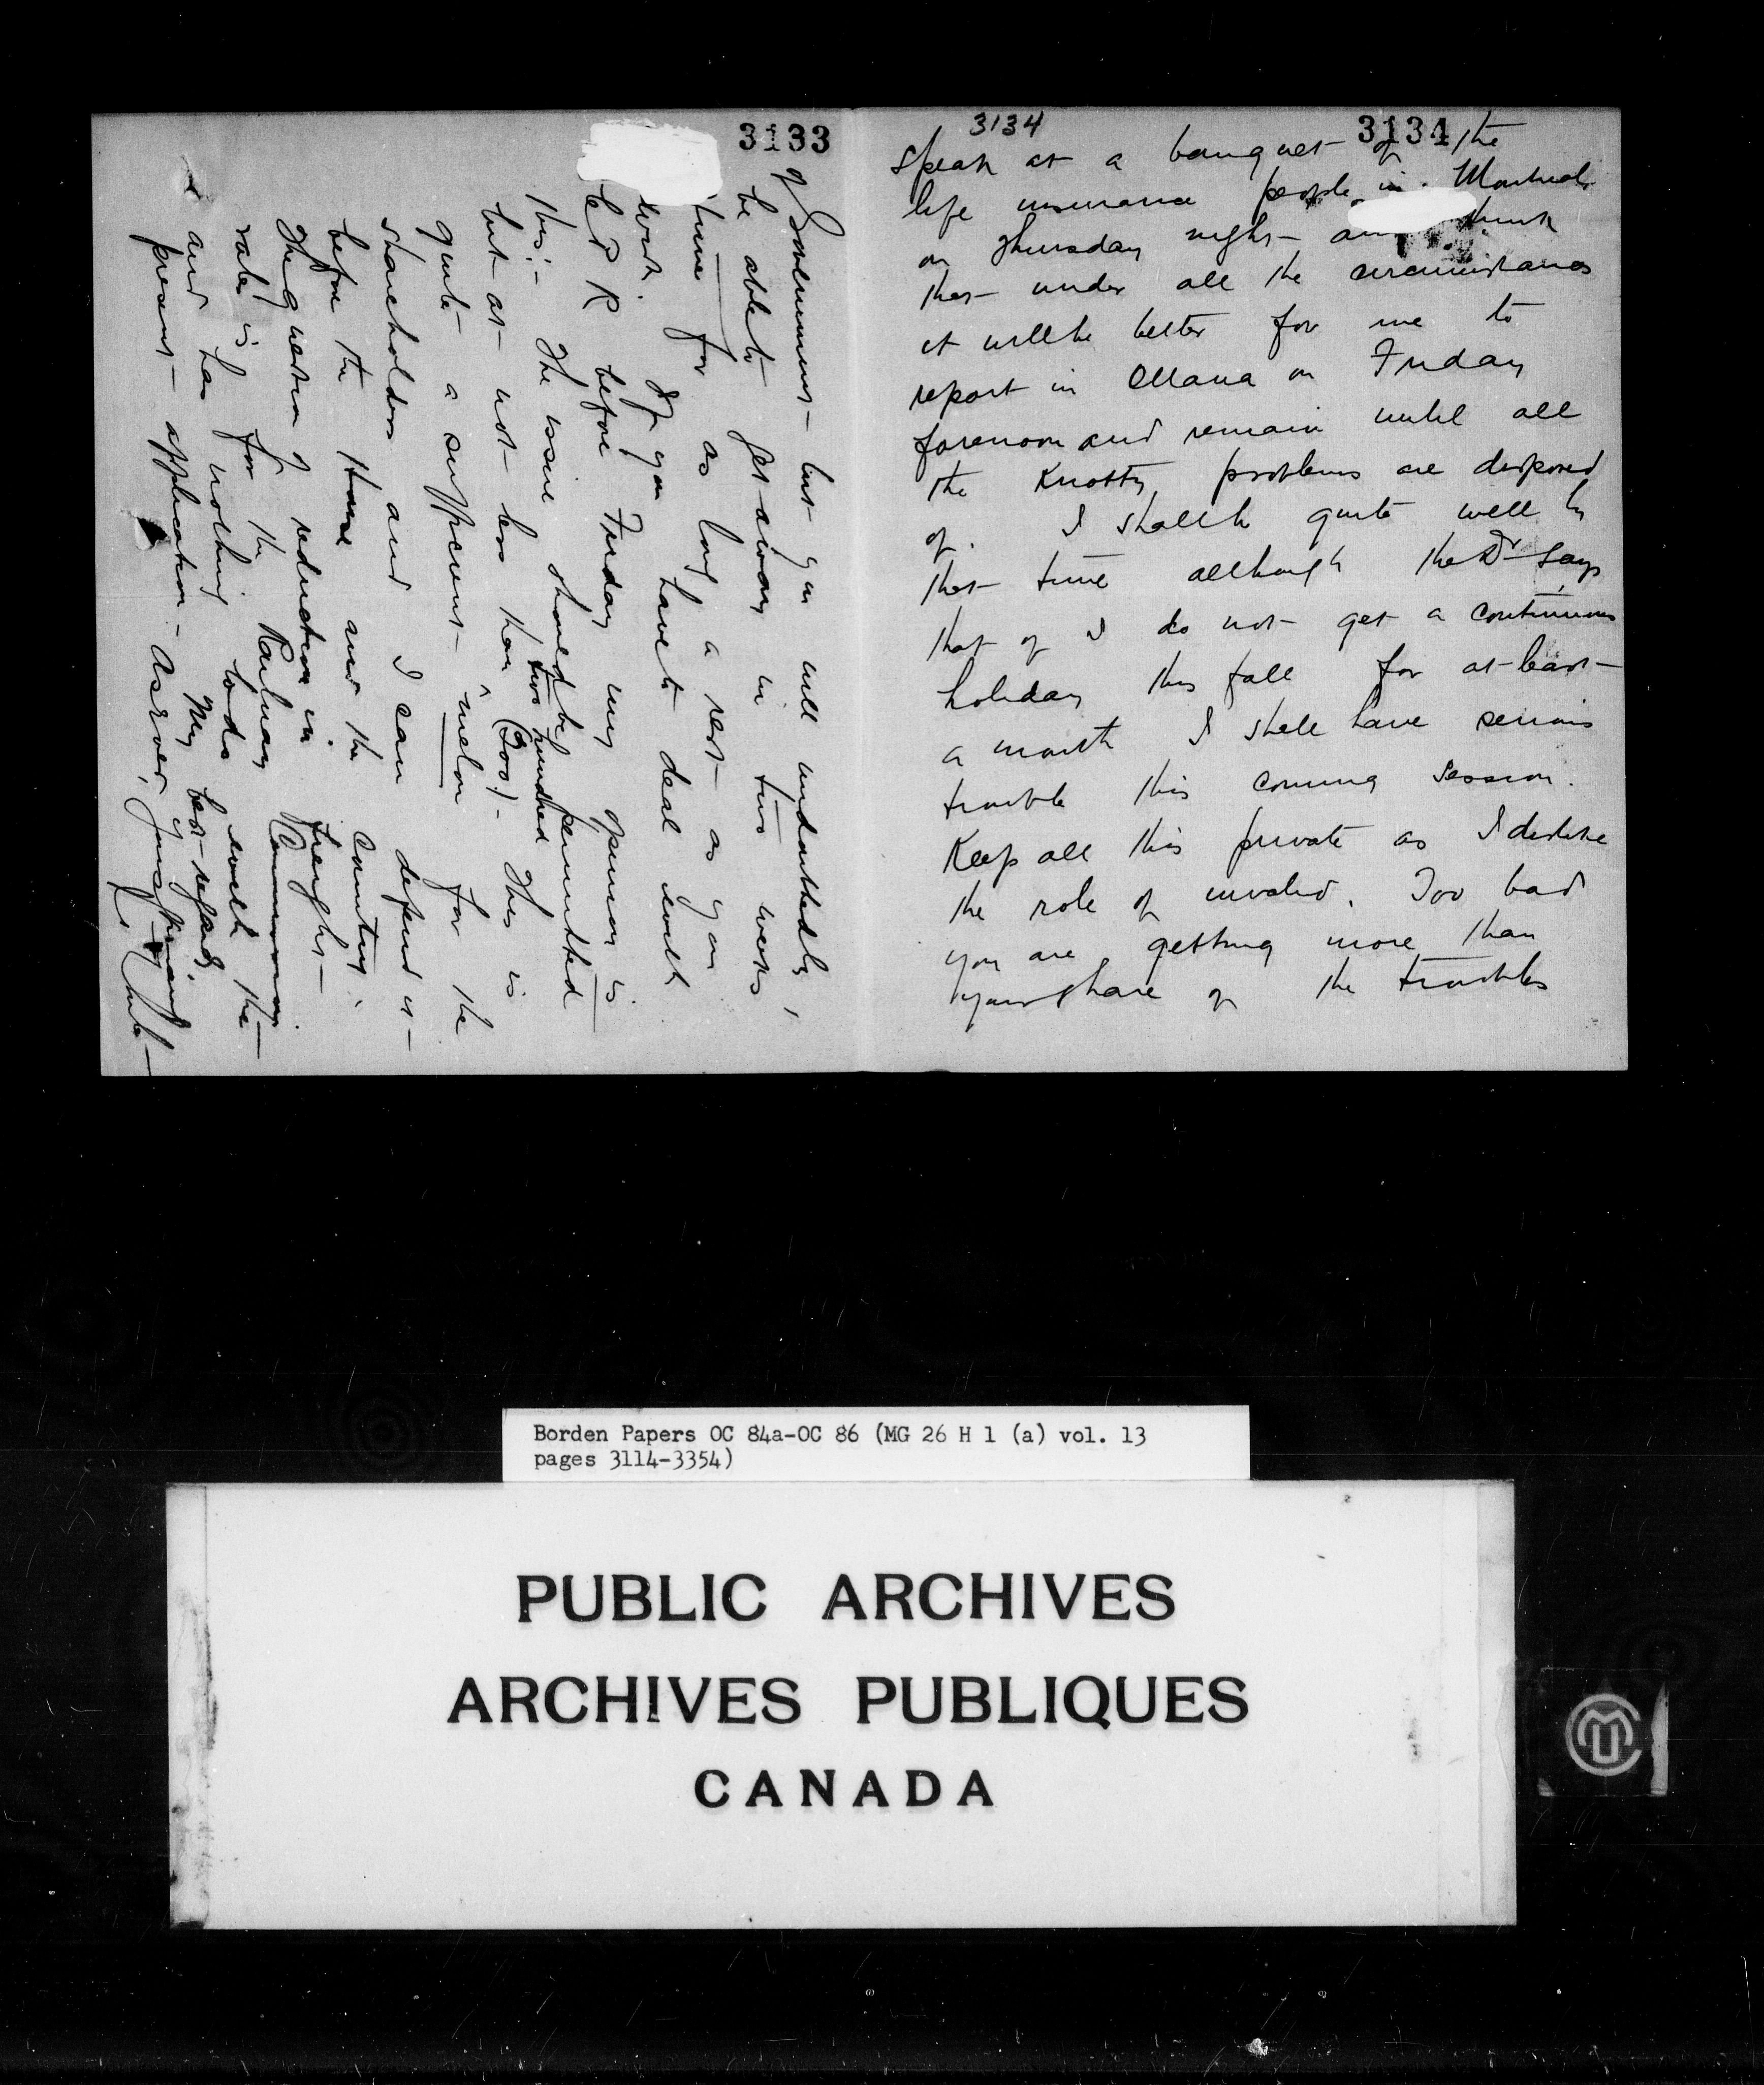 3134
3134
speak at a banquet of the
life insurance people in Montreal
on Thursday night and think
that under all the circumstances
it will be better for me to
report in Ottawa on Friday
forenoon and remain until all
the Knotty problems are disposed
of. I shall be quite well by
that time although the Dr says
that if I do not get a continuous
holiday this fall for at least
a month I shall have serious
trouble this coming session.
Keep all this private as I dislike
the role of invalid. Too bad
you are getting more than
your share of the troubles
3133
of Government but you will undoubtedly
be able to get away in two weeks
time for as long a rest as you
wish. If you have to deal with
C P R before Friday my opinion is
this:- The issue should be permitted
but at not less than two hundred (200)- This is
quite a sufficient "melon for the
shareholders and I can defend it
before the House and the Country.
The question of reduction in freight
rates is for the Railway Commission
and has nothing to do with the
present application - My best regards
As ever, yours
White
Borden Papers OC 84a-OC 86 (MG 26 H 1 (a) vol. 13
pages 3114-3354)
PUBLIC ARCHIVES
ARCHIVES PUBLIQUES
CANADA